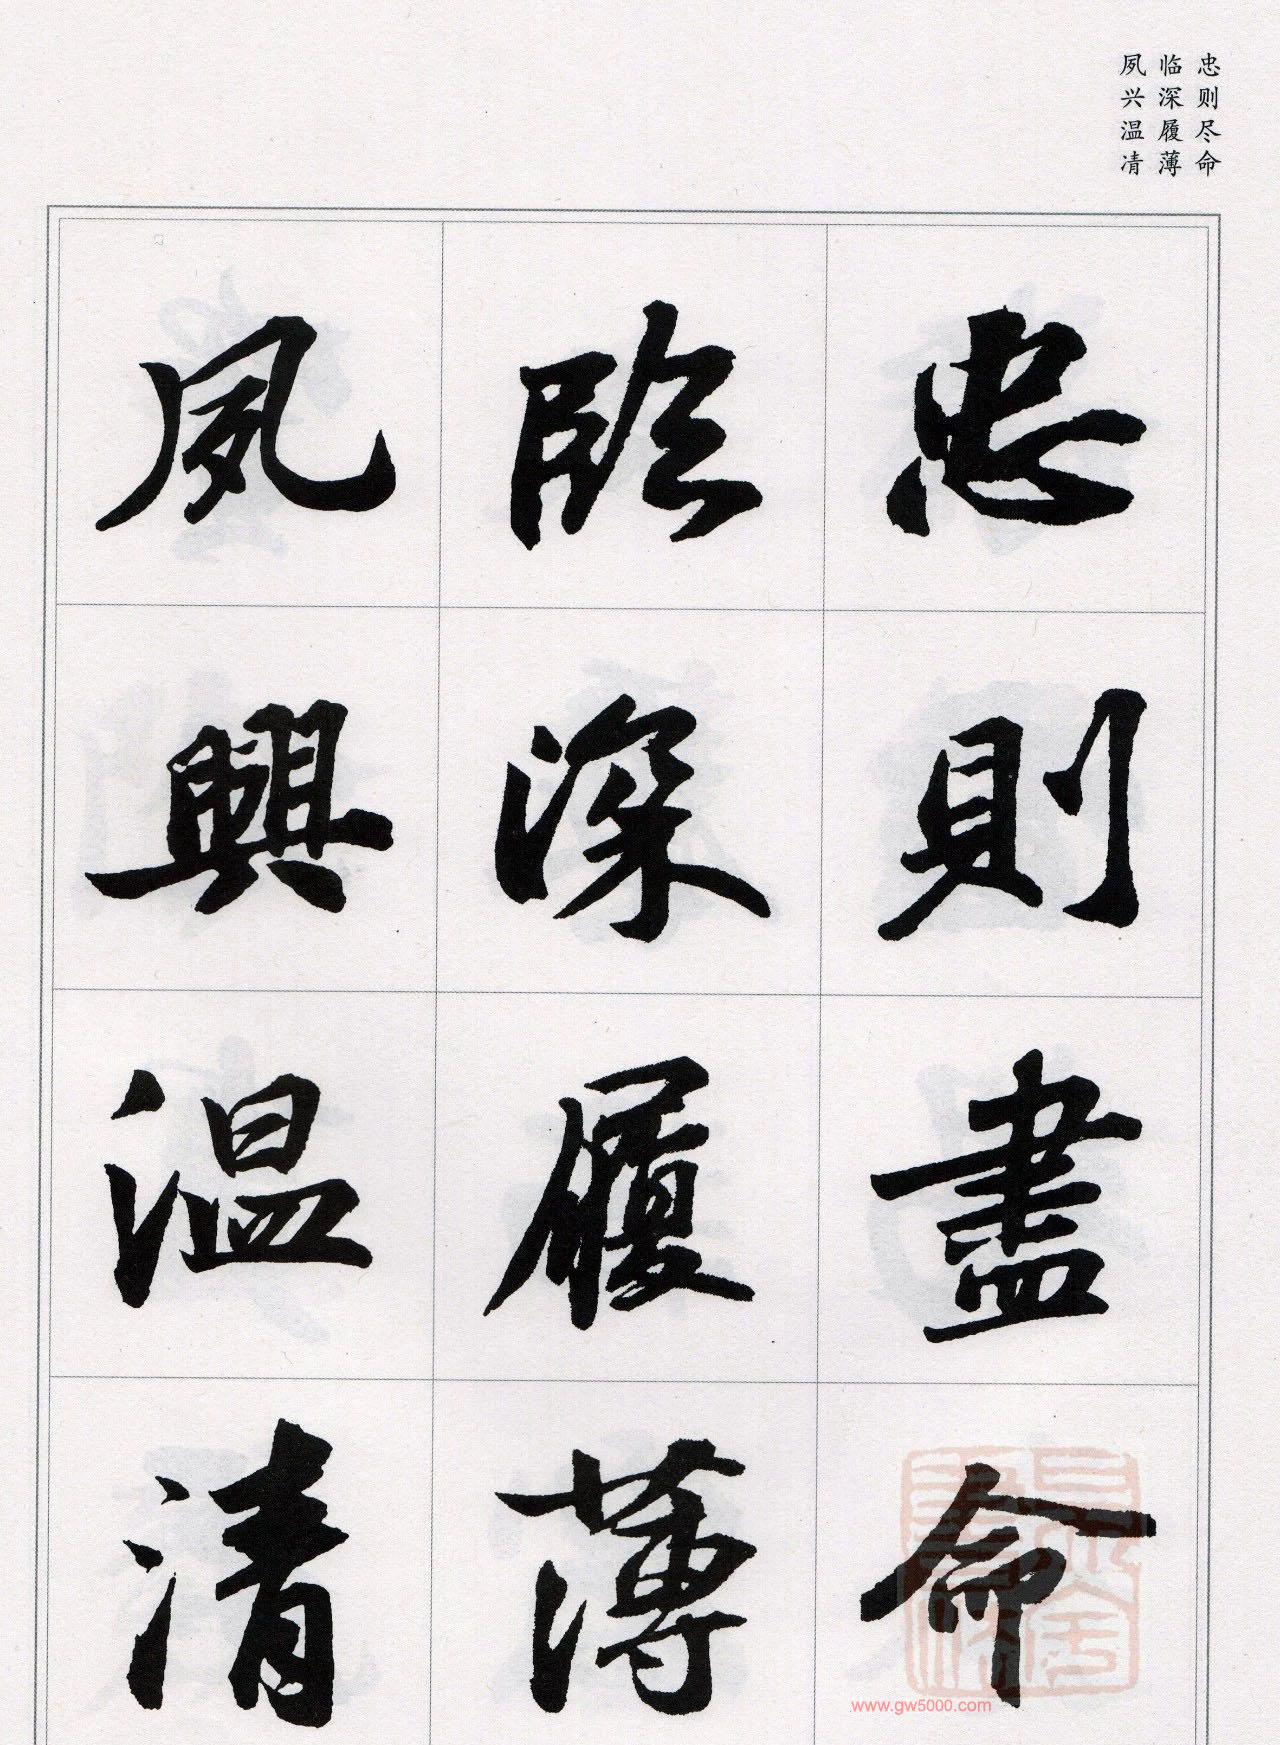 忠则尽命
临深履薄
夙兴温凊
忠則盡命
臨深履薄
夙興温清
www.gw5000.com